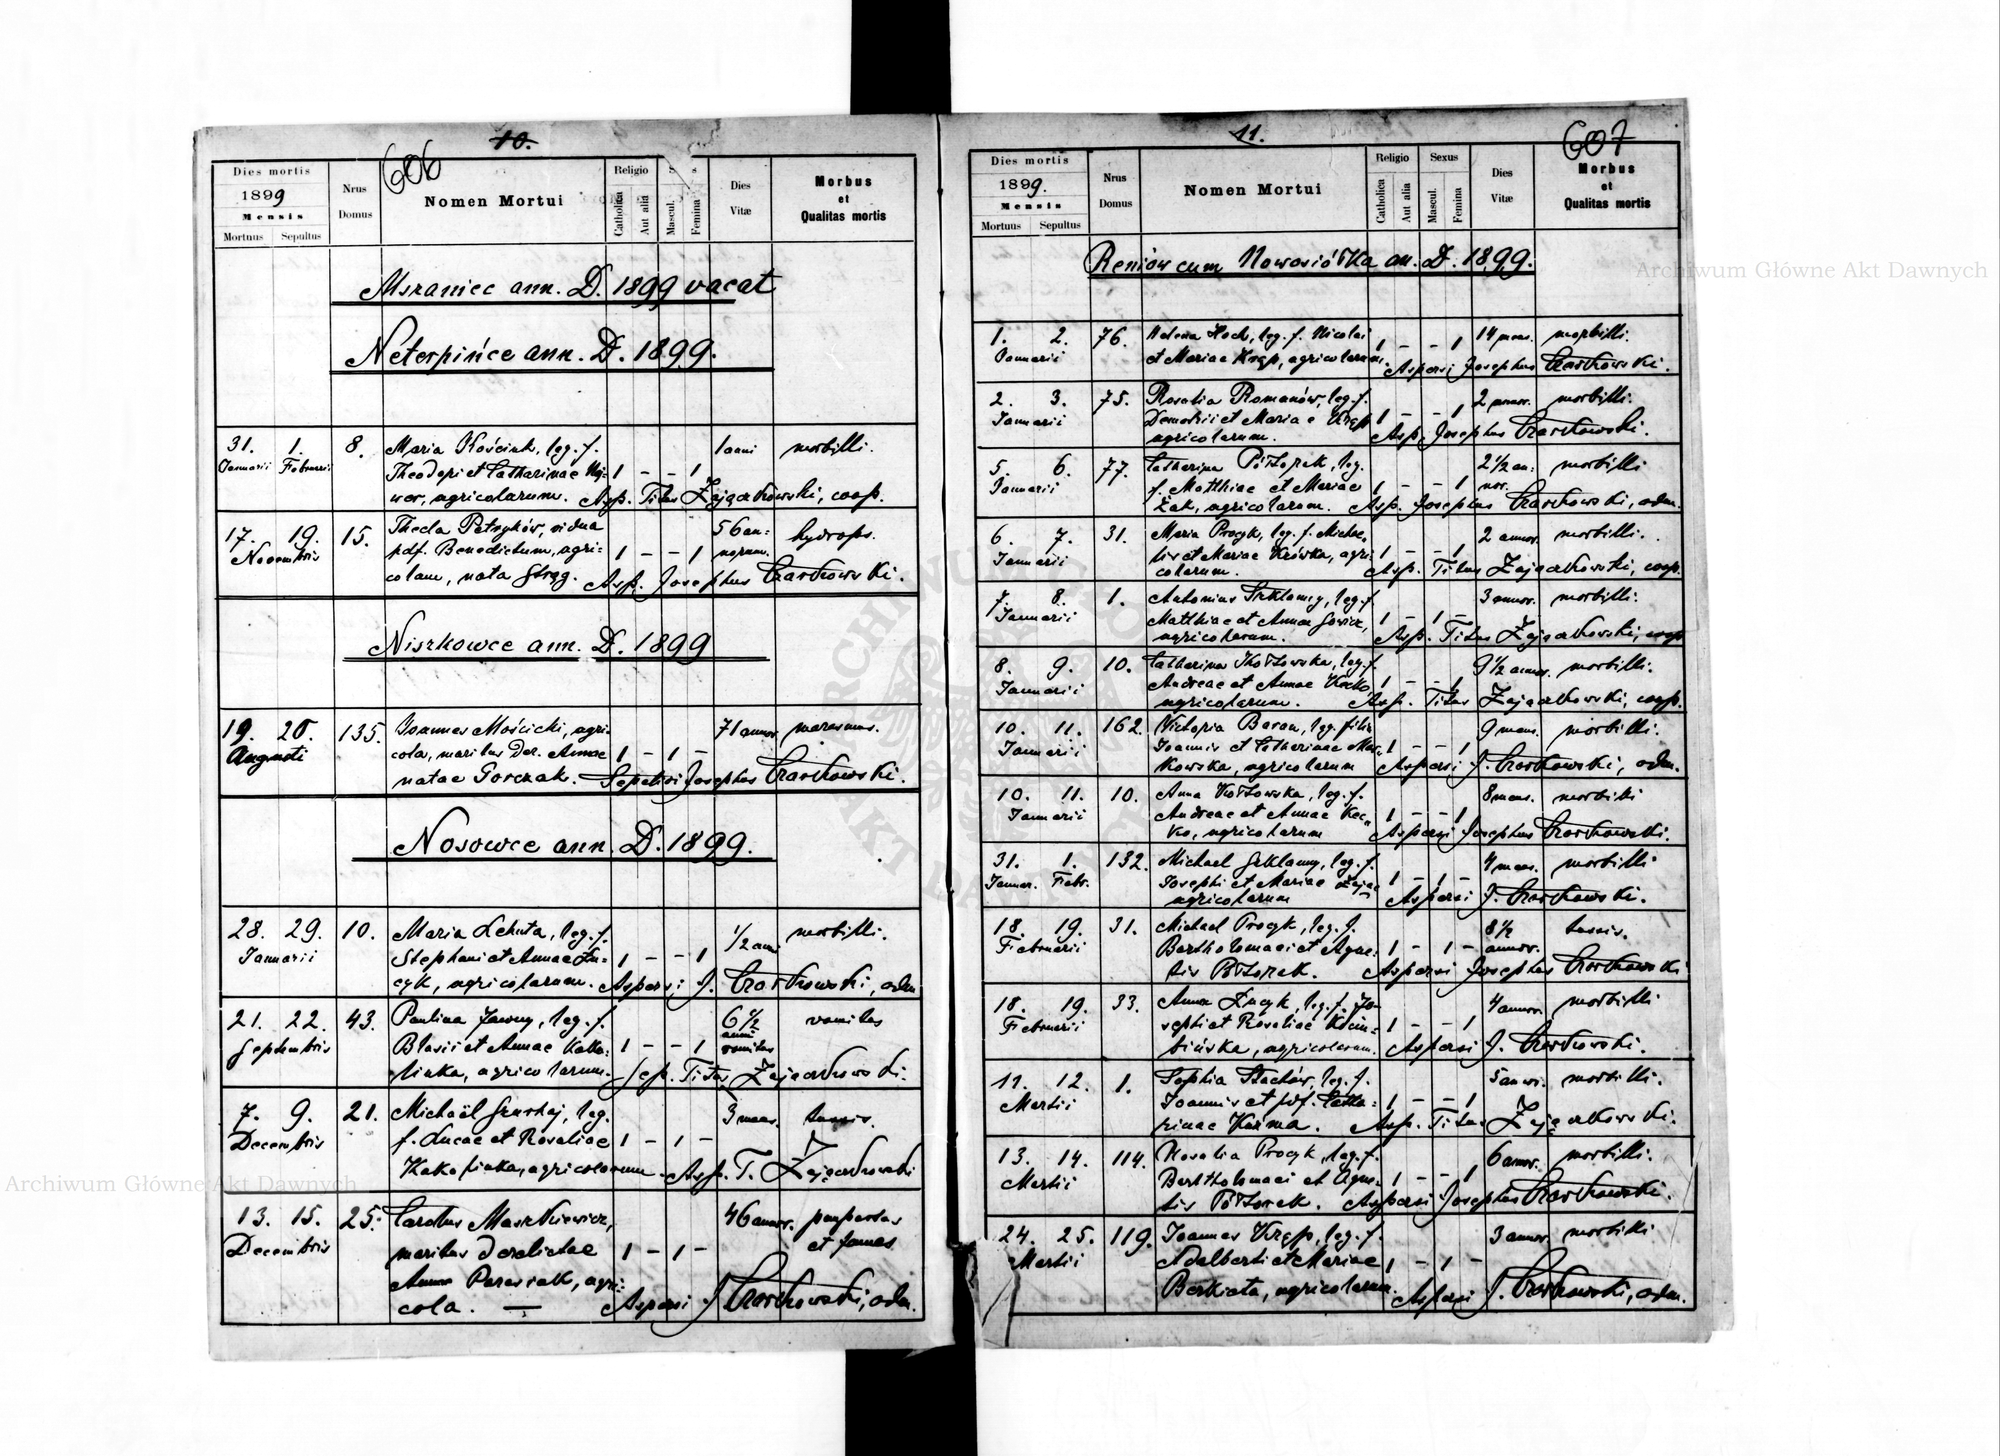 10.
606
Dies mortis
1899
Mensis
Mortuus Sepultus
Nrus
Domus
Nomen Mortui
Religio
Catholica
Aut alia
Mascul.
Femina
Dies
Vitæ
Morbus
et
Qualitas mortis
Mszaniec ann. D. 1899 vacat
Neterpińce ann. D. 1899.
31. 1. 8. Maria Kościuk, leg. f. 1 anni morbilli.
Januarii Februarii Theodori et Catharinae
agricolarum. Asp. Titus Zajączkowski, coop.
17. 19. 15. Thecla Petryków, vidua 56 an- hydrops.
Novembris Benedictum, agri- 1 – – 1 norum.
colam, nata Asp. Josephus Czartkowski.
Niszkowce ann. D. 1899
19. 20. 135. Joannes Mościcki, agri- 71 annor. marasmus.
Augusti cola, maritus der. Annae 1 – 1 –
natae Gorczak. Sepelivi Josephus Czartkowski.
Nosowce ann. D. 1899.
28. 29. 10. Maria Lehuta, leg. f. 1/2 anni morbilli.
Januarii Stephani et Annae Łu- 1 – – 1
cyk, agricolarum. Aspersi J. Czartkowski, adm.
21. 22. 43. Paulina Jawny, leg. f. 6 1/2 vomitus
Septembris Blasii et Annae Kaka- 1 – – 1 anni vomitus
liaka, agricolarum. Sep. Titus Zajączkowski.
7. 9. 21. Michaël leg. 3 mens. tussis.
Decembris f. Lucae et Rosaliae 1 – 1 –
agricolarum. Asp. T. Zajączkowski
13. 15. 25. Carolus Maszkiewicz, 46 annor. paupertas
Decembris maritus derelictae 1 – 1 – et fames
Annae Parasiak, agri-
cola. — Aspersi J. Czartkowski, adm.
11.
607
Dies mortis
1899.
Mensis
Mortuus Sepultus
Nrus
Domus
Nomen Mortui
Religio
Catholica
Aut alia
Sexus
Mascul.
Femina
Dies
Vitæ
Morbus
et
Qualitas mortis
Reniów cum Nowosiółka an. D. 1899.
1. 2. 76. Helena Hoch, leg. f. Nicolai 1 – – 1 14 mens. morbilli.
Januarii et Mariae Kręp, agricolarum. Aspersi Josephus Czartkowski.
2. 3. 75. Rosalia Romanów, leg. f. 2 annor. morbilli.
Januarii Demetrii et Mariae Kręp 1 – – 1
agricolarum. Asp. Josephus Czartkowski.
5. 6. 77. Catharina Półtorak, leg. 2 1/2 an- morbilli
Januarii f. Matthiae et Mariae 1 – – 1 nor.
Żak, agricolarum. Asp. Josephus Czartkowski, adm.
6. 7. 31. Maria Procyk, leg. f. Michae- 2 annor. morbilli.
Januarii lis et Mariae Krówka, agri- 1 – – 1
colarum. Asp. Titus Zajączkowski, coop.
7. 8. 1. Antonius Szklanny, leg. f. 3 annor. morbilli.
Januarii Matthiae et Annae 1 – 1 –
agricolarum. Asp. Titus Zajączkowski, coop
8. 9. 10. Catharina Kozłowska, leg. f. 9 1/2 annor. morbilli.
Januarii Andreae et Annae Kocko, 1 – – 1
agricolarum. Asp. Titus Zajączkowski, coop.
10. 11. 162. Victoria Baran, leg. filia 9 mens. morbilli.
Januarii Joannis et Catherinae Mar- 1 – – 1
kowska, agricolarum Aspersi J. Czartkowski, adm.
10. 11. 10. Anna Kozłowska, leg. f. 8 mens. morbilli
Januarii Andreae et Annae Koc- 1 – – 1
ko, agricolarum Aspersi Josephus Czartkowski.
31. 1. 132. Michael Szklanny, leg. f. 4 mens. morbilli
Januar. Febr. Josephi et Mariae Zając 1 – 1 –
agricolarum Aspersi J. Czartkowski.
18. 19. 31. Michael Procyk, leg. f. 8 1/2 tussis.
Februarii Bartholomaei et Agne- 1 – 1 – annor.
tis Półtorak. Aspersi Josephus Czartkowski
18. 19. 33. Anna Łucyk, leg. f. Jo- 4 annor. morbilli
Februarii sephi et Rosaliae 1 – – 1
agricolarum. Aspersi J. Czartkowski.
11. 12. 1. Sophia Stachów, leg. f. 5 anni. morbilli.
Martii Joannis et pdf. Catha- 1 – – 1
rinae Karma. Asp. Titus Zajączkowski.
13. 14. 114. Rosalia Procyk, leg. f. 6 annor. morbilli.
Martii Bartholomaei et Agne- 1 – – 1
tis Półtorak. Aspersi Josephus Czartkowski.
24. 25. 119. Joannes Kręp, leg. f. 3 annor. morbilli
Martii Adalberti et Mariae 1 – 1 –
agricolarum. Aspersi J. Czartkowski, adm.
Archiwum Główne Akt Dawnych
Archiwum Główne Akt Dawnych